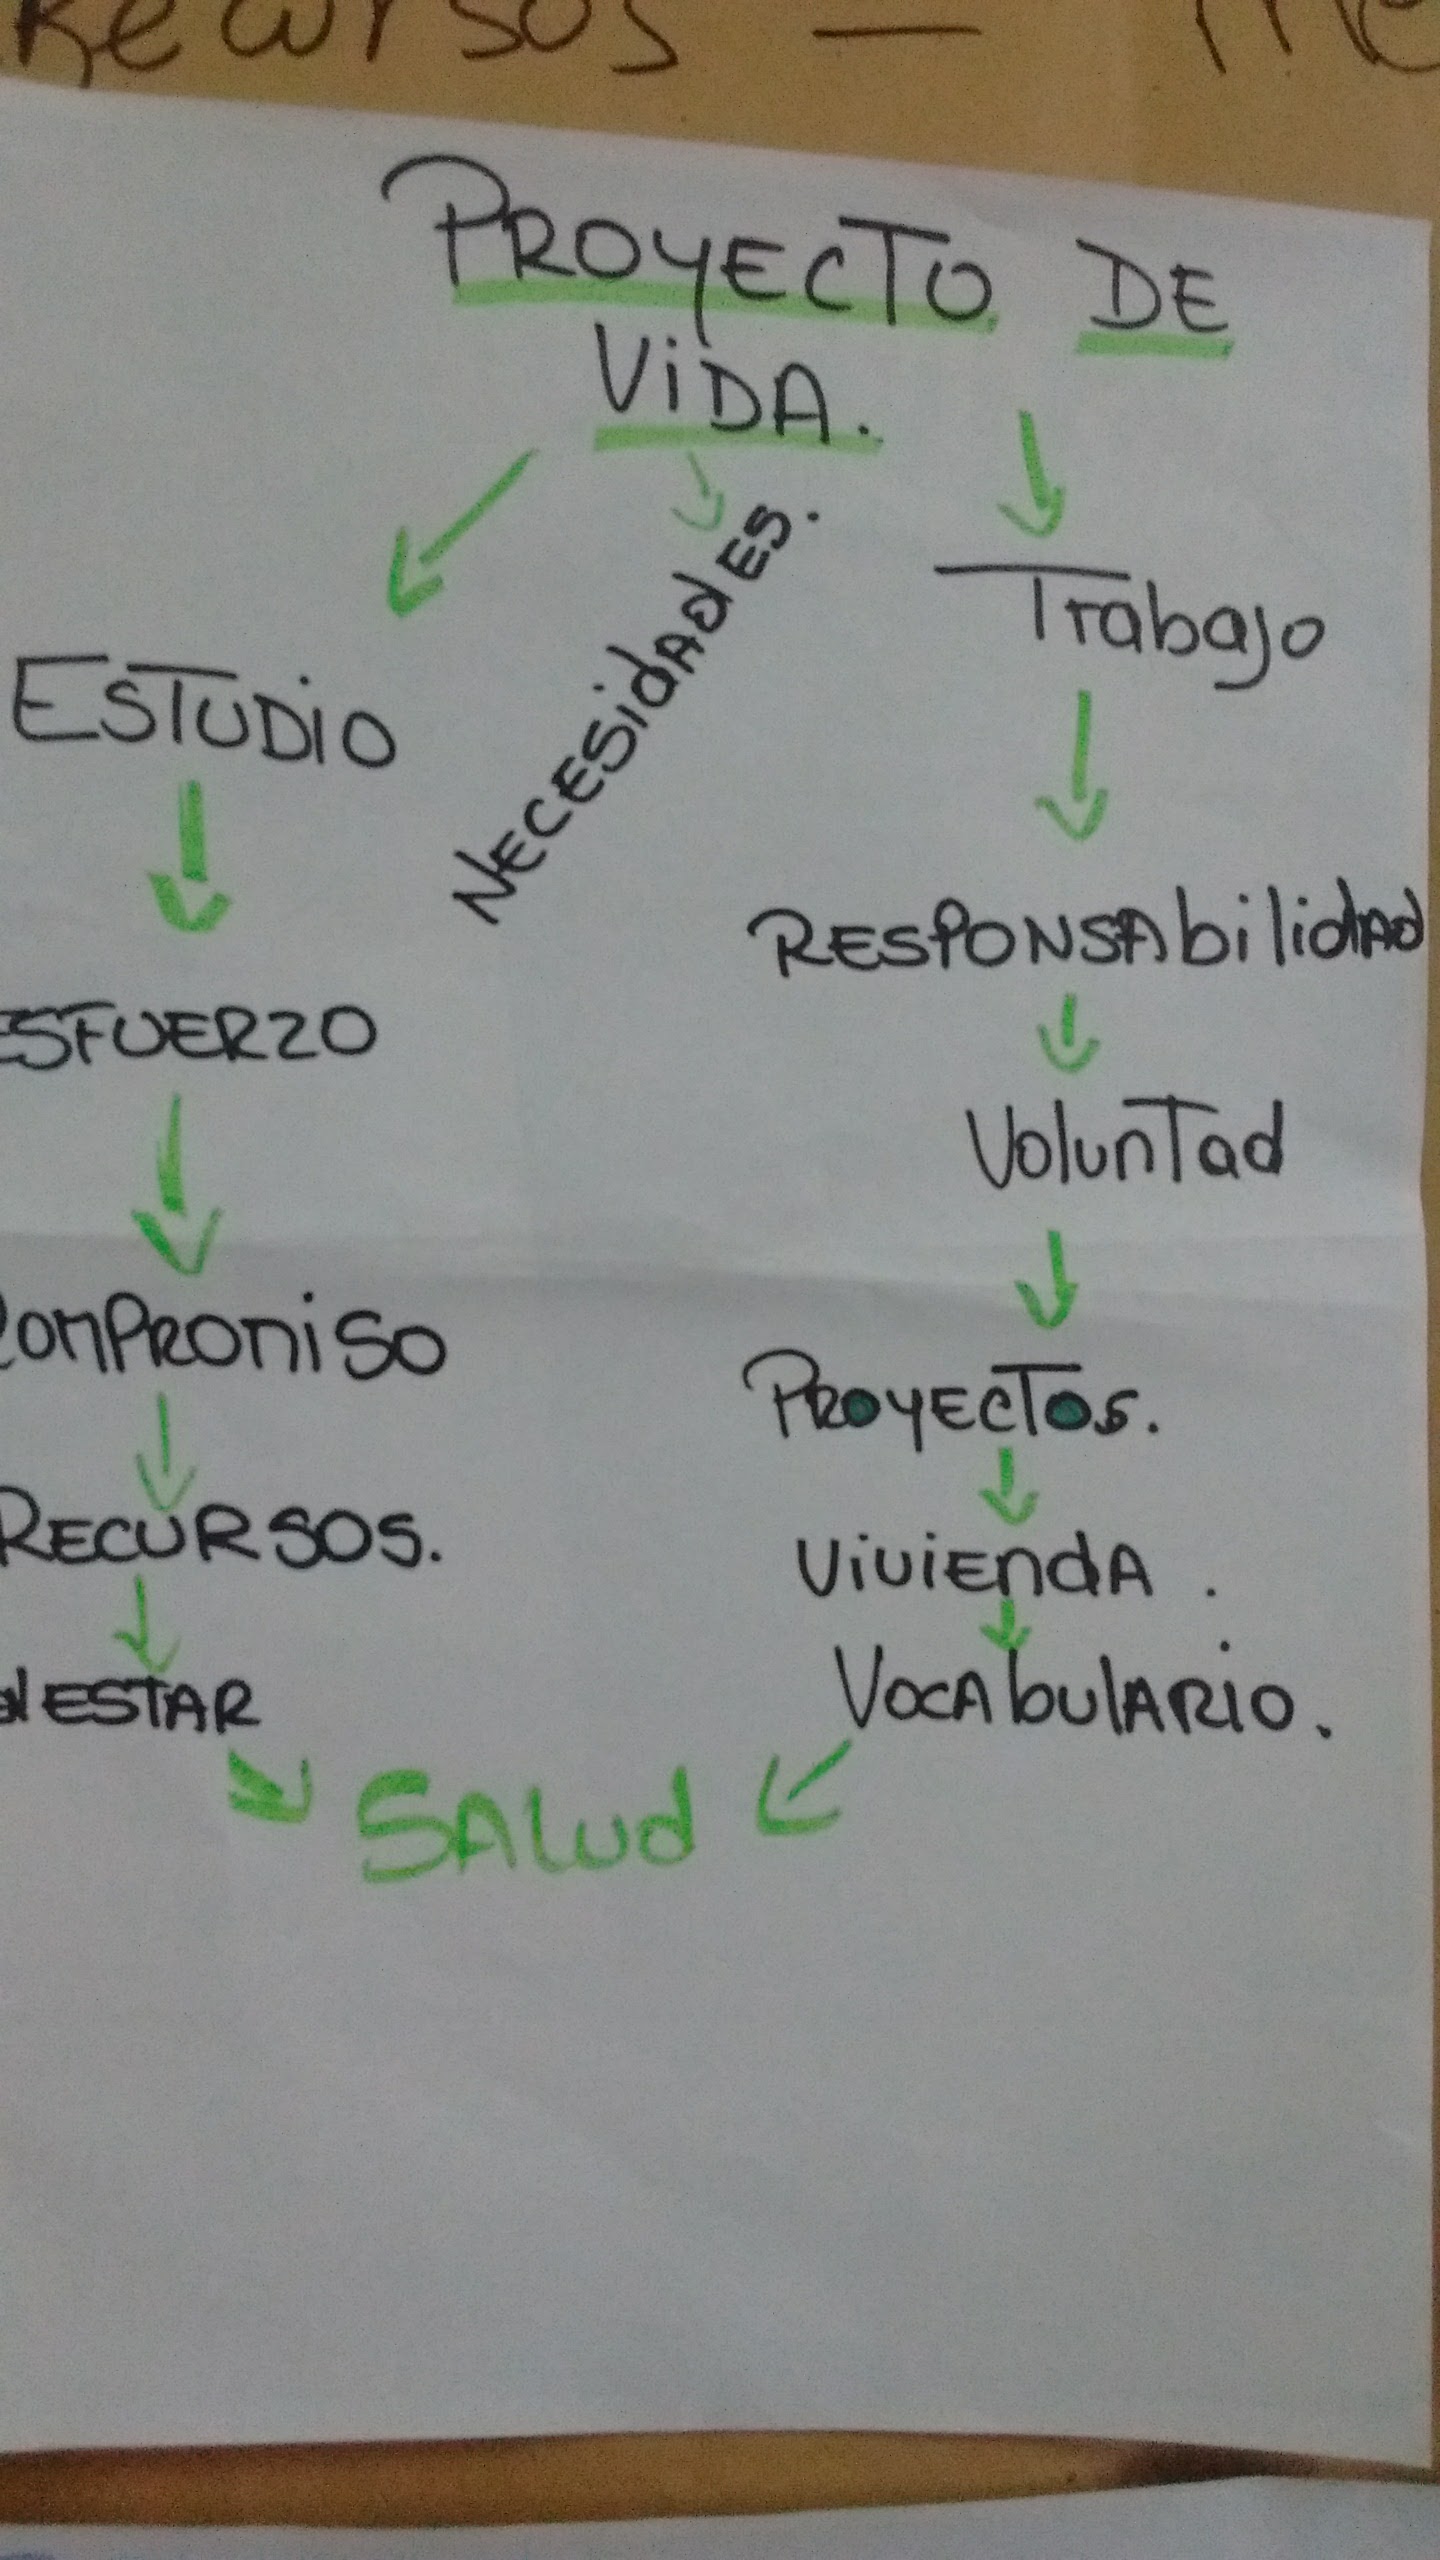 Recursos —
PROYECTO DE
ViDA.
NECESidAdES.
Trabajo
ESTUDiO
RESPONSAbilidAd
ESFUERZO
VolunTad
ComPRoniso
PROYECTOS.
RECURSOS.
ViViEndA.
NESTAR
VOCAbulARIO.
SAlud